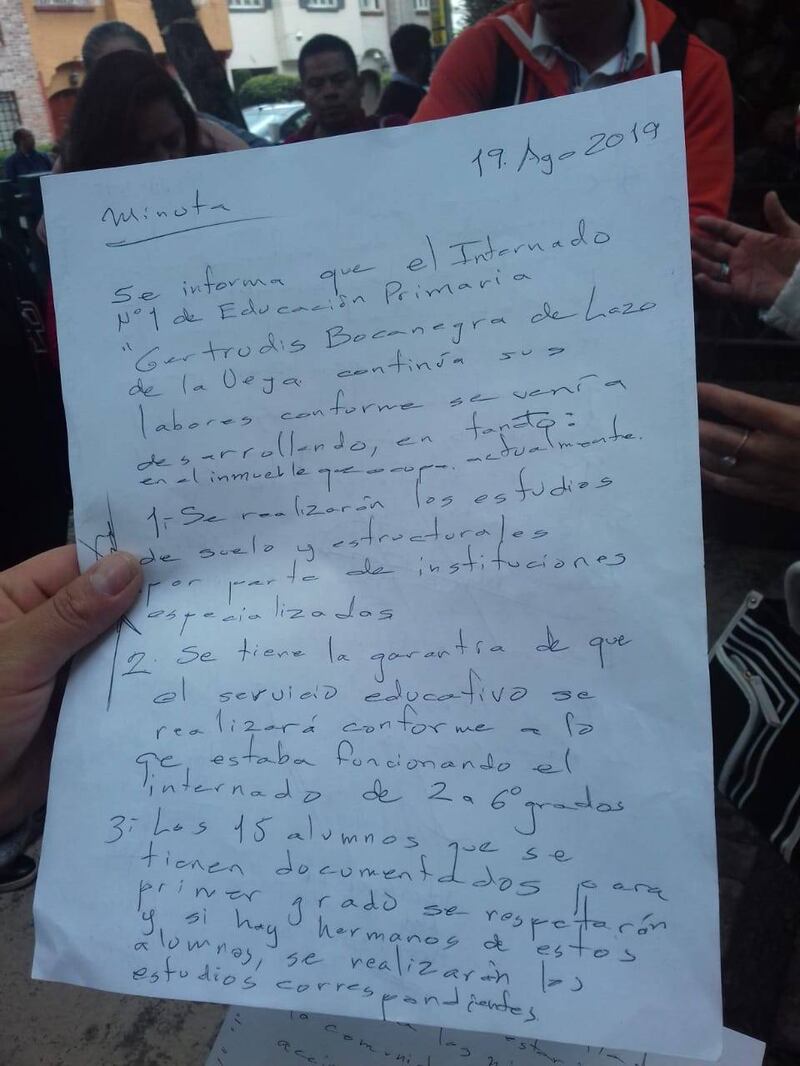 19. Ago 2019
Minuta
Se informa que el Internado
Nº1 de Educación Primaria
"Gertrudis Bocanegra de Lazo
de la Vega continúa sus
labores conforme se venía
desarrollando, en tanto:
en el inmueble que ocupa. actualmente.
1.- Se realizarán los estudios
de suelo y estructurales
por parte de instituciones
especializadas
2. Se tiene la garantía de que
el servicio educativo se
realizará conforme a lo
qe estaba funcionando el
internado de 2 a 6º grados
3.- Los 15 alumnos que se
tienen documentados para
primer grado se respetarán
y si hay hermanos de estos
alumnos, se realizarán los
estudios correspondientes.
la comuni